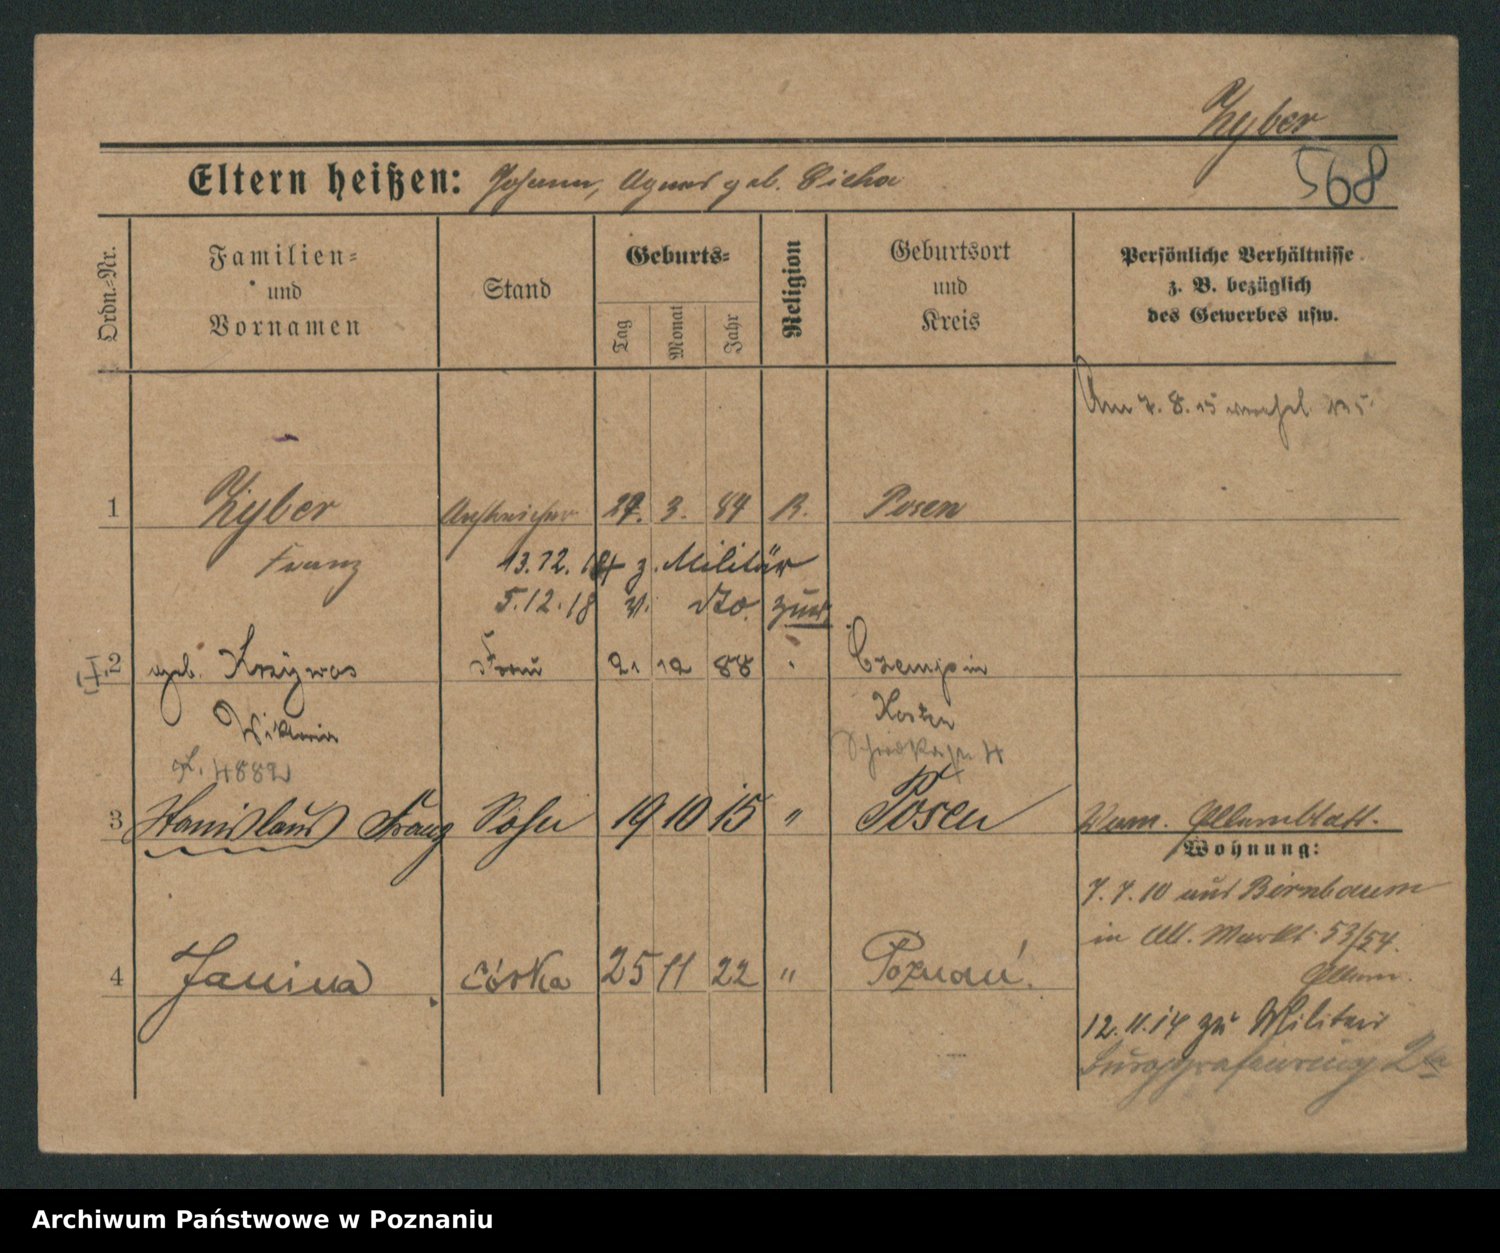 Zyber
568
Eltern heißen: Johann, Agnes geb. Cicha
Ordn.-Nr.
Familien-
und
Vornamen
Stand
Geburts-
Tag
Monat
Jahr
Religion
Geburtsort
und
Kreis
Persönliche Verhältnisse
z. B. bezüglich
des Gewerbes usw.
Am 7. 8. 15
1 Zyber Anstreicher 27. 3. 84 R. Posen
Franz
13.12.14 z. Militär
5.12.18 v. dto. zur.
2 geb. Krzywos Frau 21 12 88 " Czempin
Wiktoria Kosten
K. 4882
3 Stanislaus Franz Sohn 19 10 15 " Posen
Wohnung:
7. 7. 10 aus Birnbaum
in Alt. Markt 53/54.
4 Janina córka 25 11 22 " Poznań.
12. 11. 14 zu Militär
Burggrafenring
Archiwum Państwowe w Poznaniu